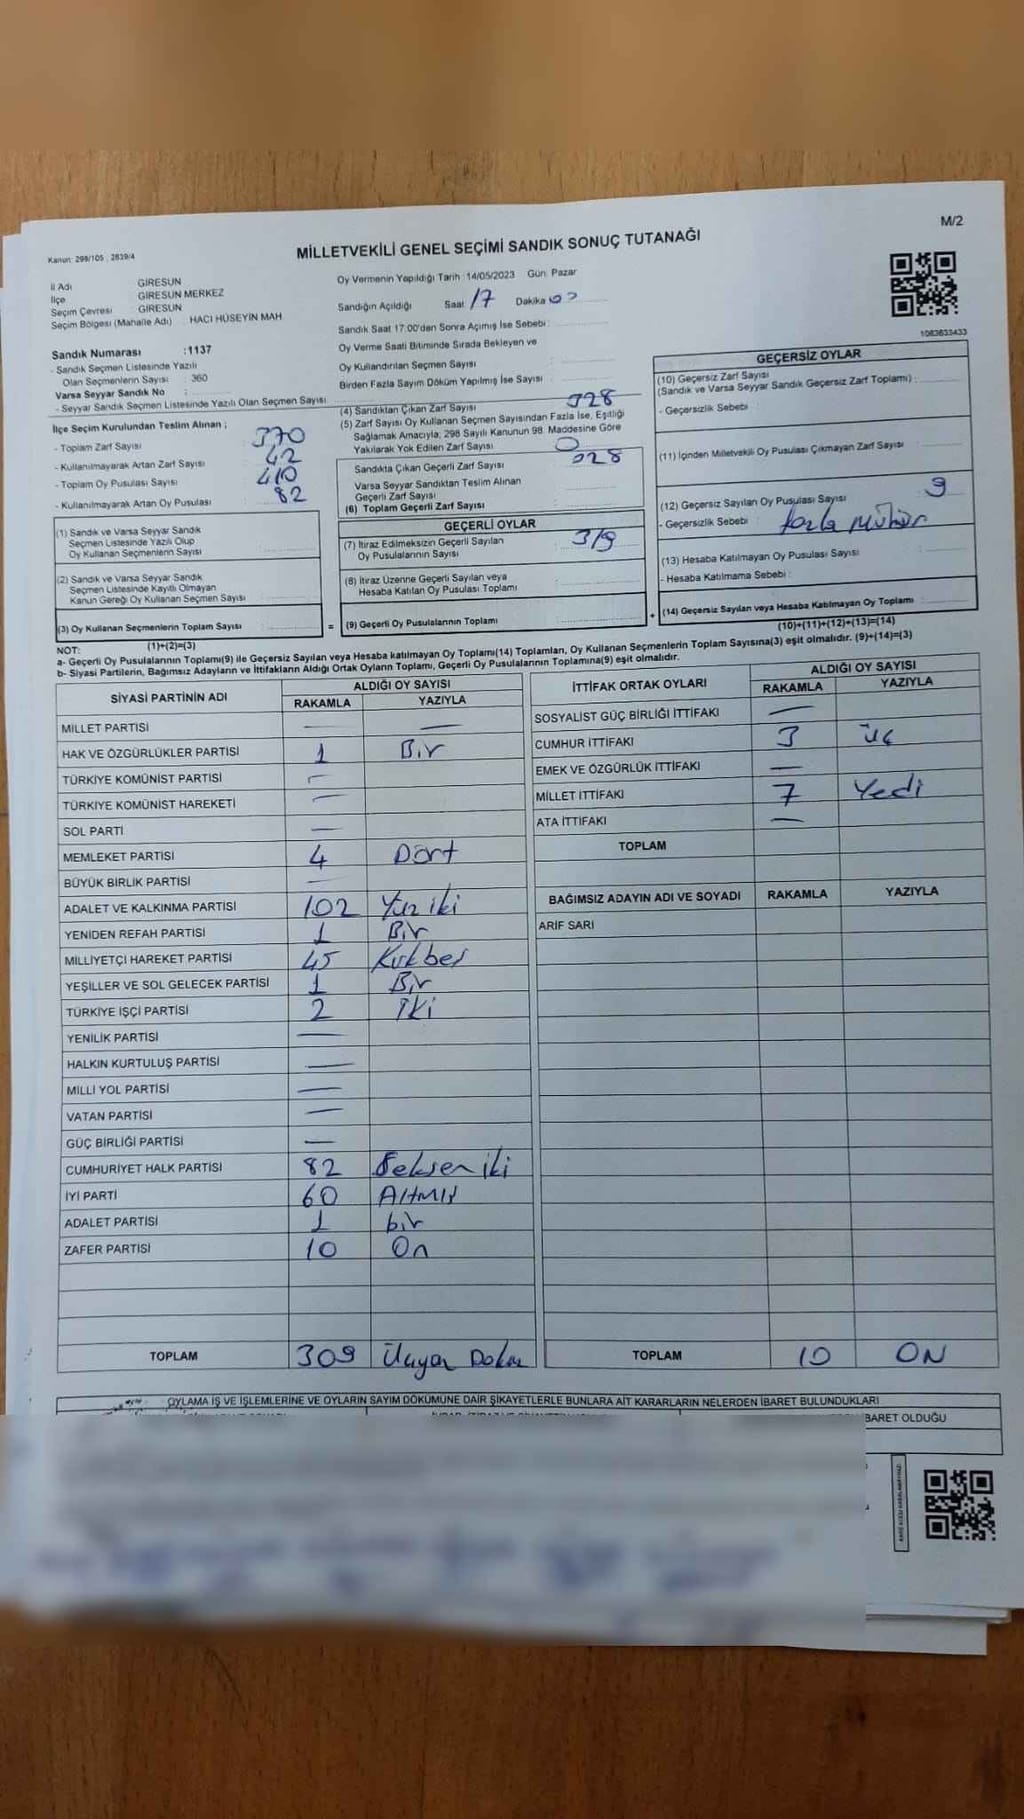 M/2
Kanun: 298/105 ; 2839/4
MİLLETVEKİLİ GENEL SEÇİMİ SANDIK SONUÇ TUTANAĞI
İl Adı GİRESUN
İlçe GİRESUN MERKEZ
Seçim Çevresi : GİRESUN
Seçim Bölgesi (Mahalle Adı) : HACI HÜSEYİN MAH
Oy Vermenin Yapıldığı Tarih : 14/05/2023 Gün: Pazar
Sandığın Açıldığı Saat 17 Dakika 00
Sandık Saat 17:00'den Sonra Açımış İse Sebebi :
Oy Verme Saati Bitiminde Sırada Bekleyen ve
Oy Kullandırılan Seçmen Sayısı :
Birden Fazla Sayım Döküm Yapılmış İse Sayısı :
1083633433
Sandık Numarası :1137
- Sandık Seçmen Listesinde Yazılı
Olan Seçmenlerin Sayısı : 360
Varsa Seyyar Sandık No :
- Seyyar Sandık Seçmen Listesinde Yazılı Olan Seçmen Sayısı
İlçe Seçim Kurulundan Teslim Alınan ;
- Toplam Zarf Sayısı 370
- Kullanılmayarak Artan Zarf Sayısı 42
- Toplam Oy Pusulası Sayısı 410
- Kullanılmayarak Artan Oy Pusulası 82
(1) Sandık ve Varsa Seyyar Sandık
Seçmen Listesinde Yazılı Olup
Oy Kullanan Seçmenlerin Sayısı
(2) Sandık ve Varsa Seyyar Sandık
Seçmen Listesinde Kayıtlı Olmayan
Kanun Gereği Oy Kullanan Seçmen Sayısı
(3) Oy Kullanan Seçmenlerin Toplam Sayısı
(1)+(2)=(3)
(4) Sandıktan Çıkan Zarf Sayısı 328
(5) Zarf Sayısı Oy Kullanan Seçmen Sayısından Fazla İse, Eşitliği
Sağlamak Amacıyla, 298 Sayılı Kanunun 98. Maddesine Göre
Yakılarak Yok Edilen Zarf Sayısı 0
Sandıkta Çıkan Geçerli Zarf Sayısı 328
Varsa Seyyar Sandıktan Teslim Alınan
Geçerli Zarf Sayısı
(6) Toplam Geçerli Zarf Sayısı
GEÇERLİ OYLAR
(7) İtiraz Edilmeksizin Geçerli Sayılan
Oy Pusulalarının Sayısı 319
(8) İtiraz Üzerine Geçerli Sayılan veya
Hesaba Katılan Oy Pusulası Toplamı
= (9) Geçerli Oy Pusulalarının Toplamı
GEÇERSİZ OYLAR
(10) Geçersiz Zarf Sayısı
(Sandık ve Varsa Seyyar Sandık Geçersiz Zarf Toplamı) :
- Geçersizlik Sebebi :
(11) İçinden Milletvekili Oy Pusulası Çıkmayan Zarf Sayısı
(12) Geçersiz Sayılan Oy Pusulası Sayısı 9
- Geçersizlik Sebebi : fazla Mühür
(13) Hesaba Katılmayan Oy Pusulası Sayısı
- Hesaba Katılmama Sebebi :
+ (14) Geçersiz Sayılan veya Hesaba Katılmayan Oy Toplamı
(10)+(11)+(12)+(13)=(14)
NOT:
a- Geçerli Oy Pusulalarının Toplamı(9) ile Geçersiz Sayılan veya Hesaba katılmayan Oy Toplamı(14) Toplamları, Oy Kullanan Seçmenlerin Toplam Sayısına(3) eşit olmalıdır. (9)+(14)=(3)
b- Siyasi Partilerin, Bağımsız Adayların ve İttifakların Aldığı Ortak Oyların Toplamı, Geçerli Oy Pusulalarının Toplamına(9) eşit olmalıdır.
SİYASİ PARTİNİN ADI ALDIĞI OY SAYISI
RAKAMLA YAZIYLA
MİLLET PARTİSİ — —
HAK VE ÖZGÜRLÜKLER PARTİSİ 1 Bir
TÜRKİYE KOMÜNİST PARTİSİ —
TÜRKİYE KOMÜNİST HAREKETİ —
SOL PARTİ —
MEMLEKET PARTİSİ 4 Dört
BÜYÜK BİRLİK PARTİSİ —
ADALET VE KALKINMA PARTİSİ 102 Yüz iki
YENİDEN REFAH PARTİSİ 1 Bir
MİLLİYETÇİ HAREKET PARTİSİ 45 Kırkbeş
YEŞİLLER VE SOL GELECEK PARTİSİ 1 Bir
TÜRKİYE İŞÇİ PARTİSİ 2 İki
YENİLİK PARTİSİ —
HALKIN KURTULUŞ PARTİSİ —
MİLLİ YOL PARTİSİ —
VATAN PARTİSİ —
GÜÇ BİRLİĞİ PARTİSİ —
CUMHURİYET HALK PARTİSİ 82 Seksen iki
İYİ PARTİ 60 Altmış
ADALET PARTİSİ 1 bir
ZAFER PARTİSİ 10 On
TOPLAM 309 Üçyüz Dokuz
İTTİFAK ORTAK OYLARI ALDIĞI OY SAYISI
RAKAMLA YAZIYLA
SOSYALİST GÜÇ BİRLİĞİ İTTİFAKI —
CUMHUR İTTİFAKI 3 üç
EMEK VE ÖZGÜRLÜK İTTİFAKI —
MİLLET İTTİFAKI 7 Yedi
ATA İTTİFAKI —
TOPLAM
BAĞIMSIZ ADAYIN ADI VE SOYADI RAKAMLA YAZIYLA
ARİF SARI
TOPLAM 10 ON
OYLAMA İŞ VE İŞLEMLERİNE VE OYLARIN SAYIM DÖKÜMÜNE DAİR ŞİKAYETLERLE BUNLARA AİT KARARLARIN NELERDEN İBARET BULUNDUKLARI
BARET OLDUĞU